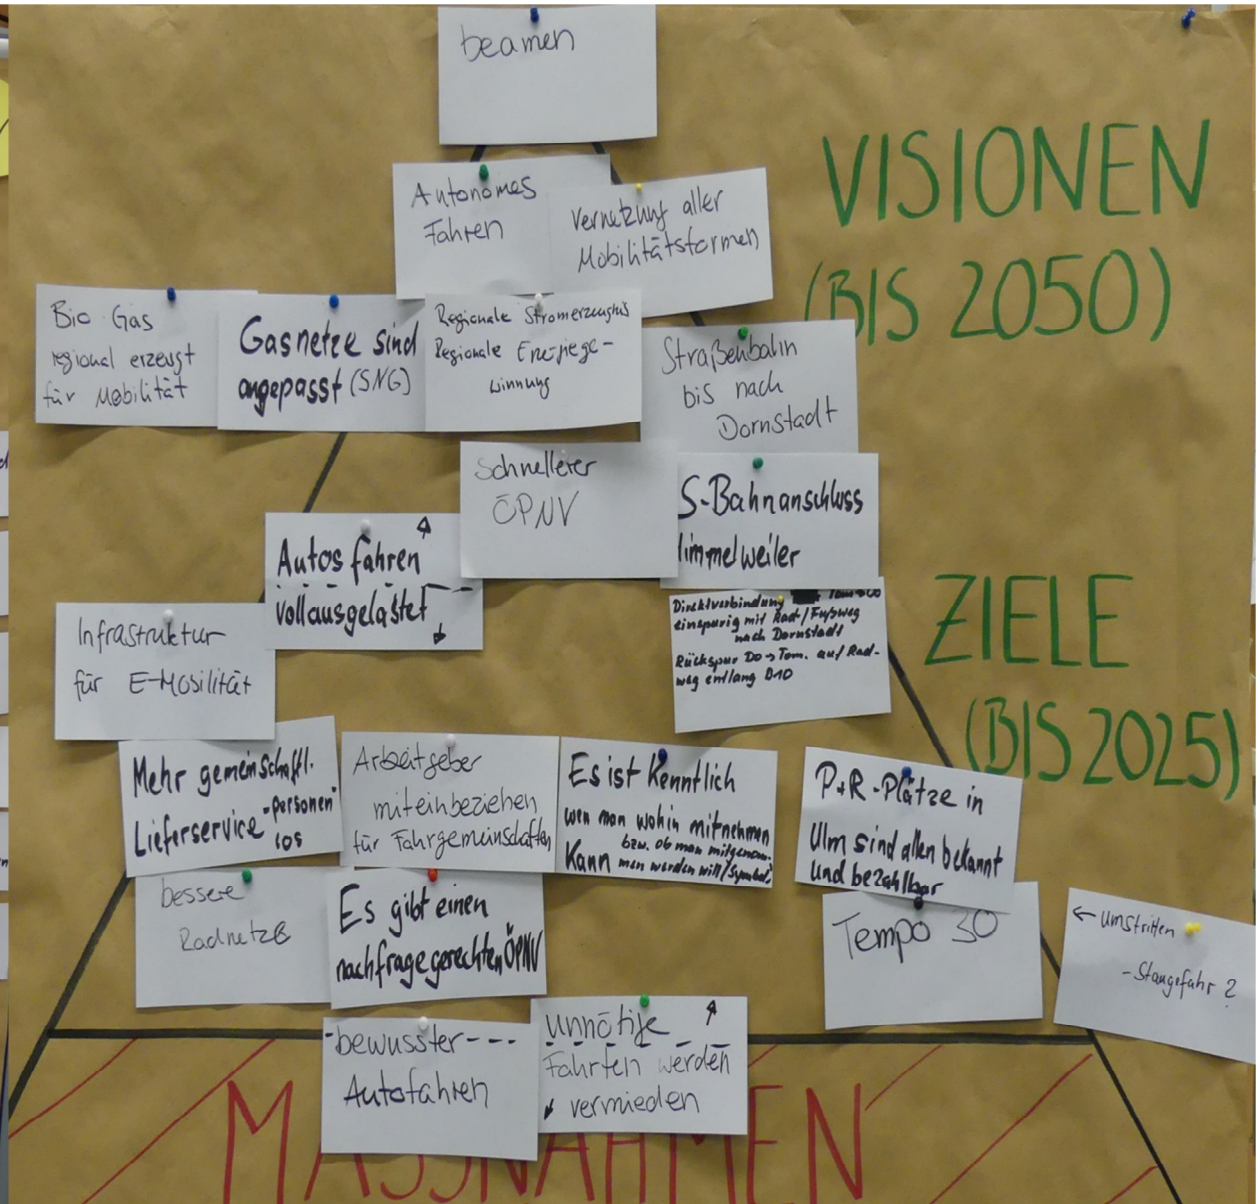 beamen
Autonomes
Fahren
Vernetzung aller
Mobilitätsformen
VISIONEN
(BIS 2050)
Bio Gas
regional erzeugt
für Mobilität
Gasnetze sind
angepasst (SNG)
Regionale Stromerzeugnis
Regionale Energiege-
winnung
Straßenbahn
bis nach
Dornstadt
Schnellerer
ÖPNV
S-Bahnanschluss
immelweiler
Autos fahren
vollausgelastet
Direktverbindung
einspurig mit Rad/Fußweg
nach Dornstadt
Rückspur Do → Tom. auf Rad-
weg entlang B10
ZIELE
(BIS 2025)
Infrastruktur
für E-Mobilität
Mehr gemeinschaftl.
Lieferservice -personen
los
Arbeitgeber
miteinbeziehen
für Fahrgemeinschaften
Es ist Kenntlich
wen man wohin mitnehmen
Kann bzw. ob man mitgenom-
men werden will/Symbol
P+R-Plätze in
Ulm sind allen bekannt
und bezahlbar
bessere
Radnetze
Es gibt einen
nachfragegerechten ÖPNV
Tempo 30
← umstritten
- Staugefahr?
bewusster
Autofahren
unnötige
Fahrten werden
vermieden
MASSNAHMEN